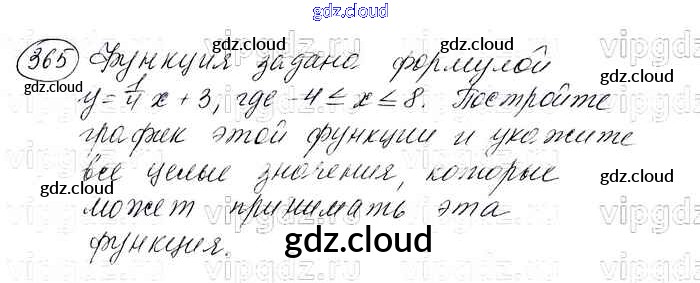 gdz.cloud
365 Функция задана формулой
y = 1/4 x + 3, где -4 ≤ x ≤ 8. Постройте
график этой функции и укажите
все целые значения, которые
может принимать эта
функция.
gdz.cloud
gdz.cloud
gdz.cloud
gdz.cloud
gdz.cloud
gdz.cloud
gdz.cloud